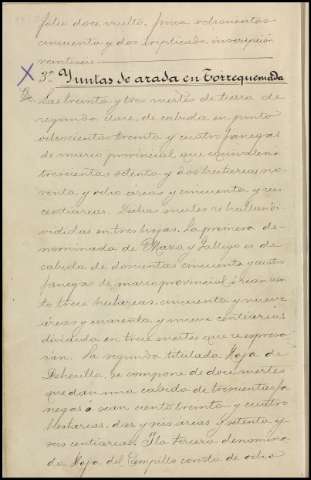 folio doce vuelto, finca ochocientos
cincuenta y dos duplicado, inscripción
veintiuna
3º Yuntas de arada en Torrequemada
Las treinta y tres suertes de tierra de
segunda clase, de cabida en junto
ochocientas treinta y cuatro fanegas
de marco provincial que equivalen a
trescientas ochenta y dos hectáreas, no
venta y ocho áreas y cincuenta y seis
centiáreas. Dichas suertes se hallan di-
vididas en tres hojas. La primera de-
nominada de Maxo y Gallego es de
cabida de doscientas cincuenta y cuatro
fanegas de marco provincial, ó sean cien-
to trece hectáreas, cincuenta y nueve
áreas y cuarenta y nueve centiáreas
dividida en trece suertes que se expresa-
rán. La segunda titulada Hoja de
Dehesilla, se compone de doce suertes
que dan una cabida de trescientas fa
negas ó sean ciento treinta y cuatro
hectáreas, diez y seis áreas y setenta y
seis centiáreas. Y la tercera denomina
da Hoja del Campillo consta de ocho